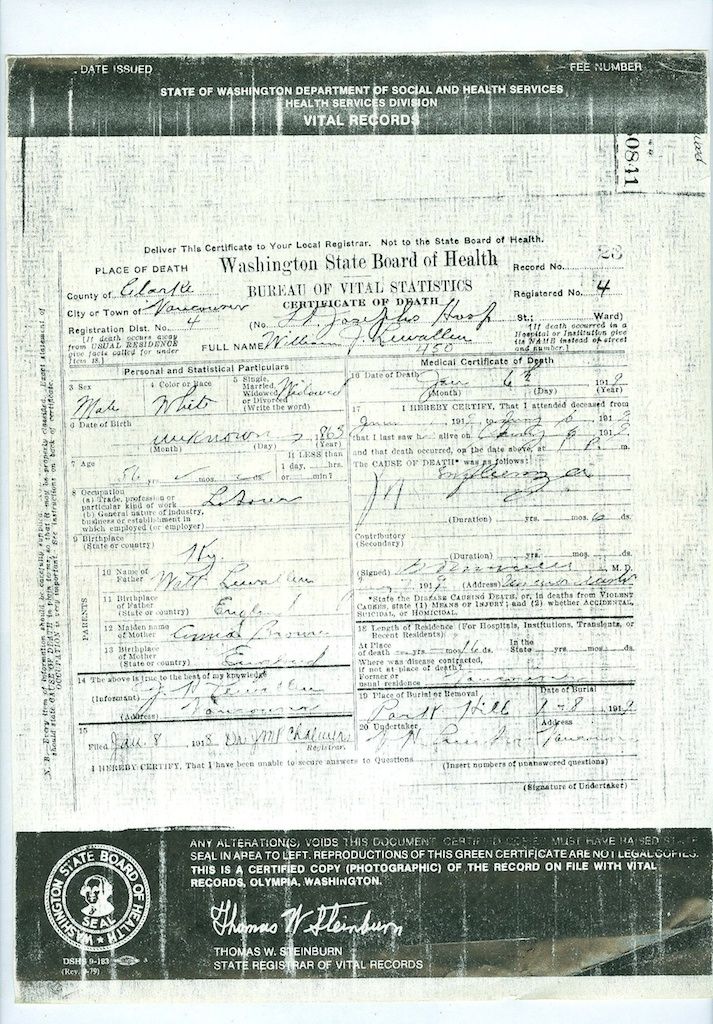 DATE ISSUED
FEE NUMBER
STATE OF WASHINGTON DEPARTMENT OF SOCIAL AND HEALTH SERVICES
HEALTH SERVICES DIVISION
VITAL RECORDS
Deliver This Certificate to Your Local Registrar. Not to the State Board of Health.
PLACE OF DEATH
Washington State Board of Health
Record No. 23
County of Clarke
BUREAU OF VITAL STATISTICS
Registered No. 4
City or Town of Vancouver
CERTIFICATE OF DEATH
Registration Dist. No. 4
(No. St. Josephs Hosp St.; Ward)
[If death occurs away from USUAL RESIDENCE give facts called for under Item 18.]
[If death occurred in a Hospital or Institution give its NAME instead of street and number.]
FULL NAME William J. Lewallen
Personal and Statistical Particulars
3 Sex
Male
4 Color or Race
White
5 Single, Married, Widowed or Divorced (Write the word)
Widowed
6 Date of Birth
unknown 1863
(Month) (Day) (Year)
7 Age
56 yrs. mos. ds.
If LESS than 1 day, hrs. or min?
8 Occupation
(a) Trade, profession or particular kind of work
Laborer
(b) General nature of industry, business or establishment in which employed (or employer)
9 Birthplace
(State or country)
Ky.
PARENTS
10 Name of Father
Watt Lewallen
11 Birthplace of Father
(State or country)
England
12 Maiden name of Mother
Brown
13 Birthplace of Mother
(State or country)
England
14 The above is true to the best of my knowledge
(Informant) Lewallen
(Address) Vancouver
15
Filed Jan. 8 1918 Dr J M Chalmers
Registrar.
Medical Certificate of Death
16 Date of Death
Jan 6th 1919
(Month) (Day) (Year)
17 I HEREBY CERTIFY, That I attended deceased from
191 to 6 191
that I last saw h alive on 6 191
and that death occurred, on the date above, at 1 P. m.
The CAUSE OF DEATH* was as follows:
Influenza
(Duration) yrs. mos. 6 ds.
Contributory
(Secondary)
(Duration) yrs. mos. ds.
(Signed) M. D.
191 (Address)
*State the DISEASE CAUSING DEATH, or, in deaths from VIOLENT CAUSES, state (1) MEANS OF INJURY; and (2) whether ACCIDENTAL, SUICIDAL, or HOMICIDAL.
18 Length of Residence (For Hospitals, Institutions, Transients, or Recent Residents).
At Place of death yrs. mos. 6 ds.
In the State yrs. mos. ds.
Where was disease contracted, if not at place of death?
Former or usual residence Vancouver
19 Place of Burial or Removal
Park Hill
Date of Burial
1-8 1919
20 Undertaker
Address
Vancouver
I HEREBY CERTIFY, That I have been unable to secure answers to Questions
(Insert numbers of unanswered questions)
(Signature of Undertaker)
ANY ALTERATION(S) VOIDS THIS DOCUMENT. CERTIFIED COPIES MUST HAVE RAISED STATE
SEAL IN AREA TO LEFT. REPRODUCTIONS OF THIS GREEN CERTIFICATE ARE NOT LEGAL COPIES.
THIS IS A CERTIFIED COPY (PHOTOGRAPHIC) OF THE RECORD ON FILE WITH VITAL
RECORDS, OLYMPIA, WASHINGTON.
WASHINGTON STATE BOARD OF HEALTH
SEAL
Thomas W Steinburn
THOMAS W. STEINBURN
STATE REGISTRAR OF VITAL RECORDS
DSHS 9-183
(Rev. 9-79)